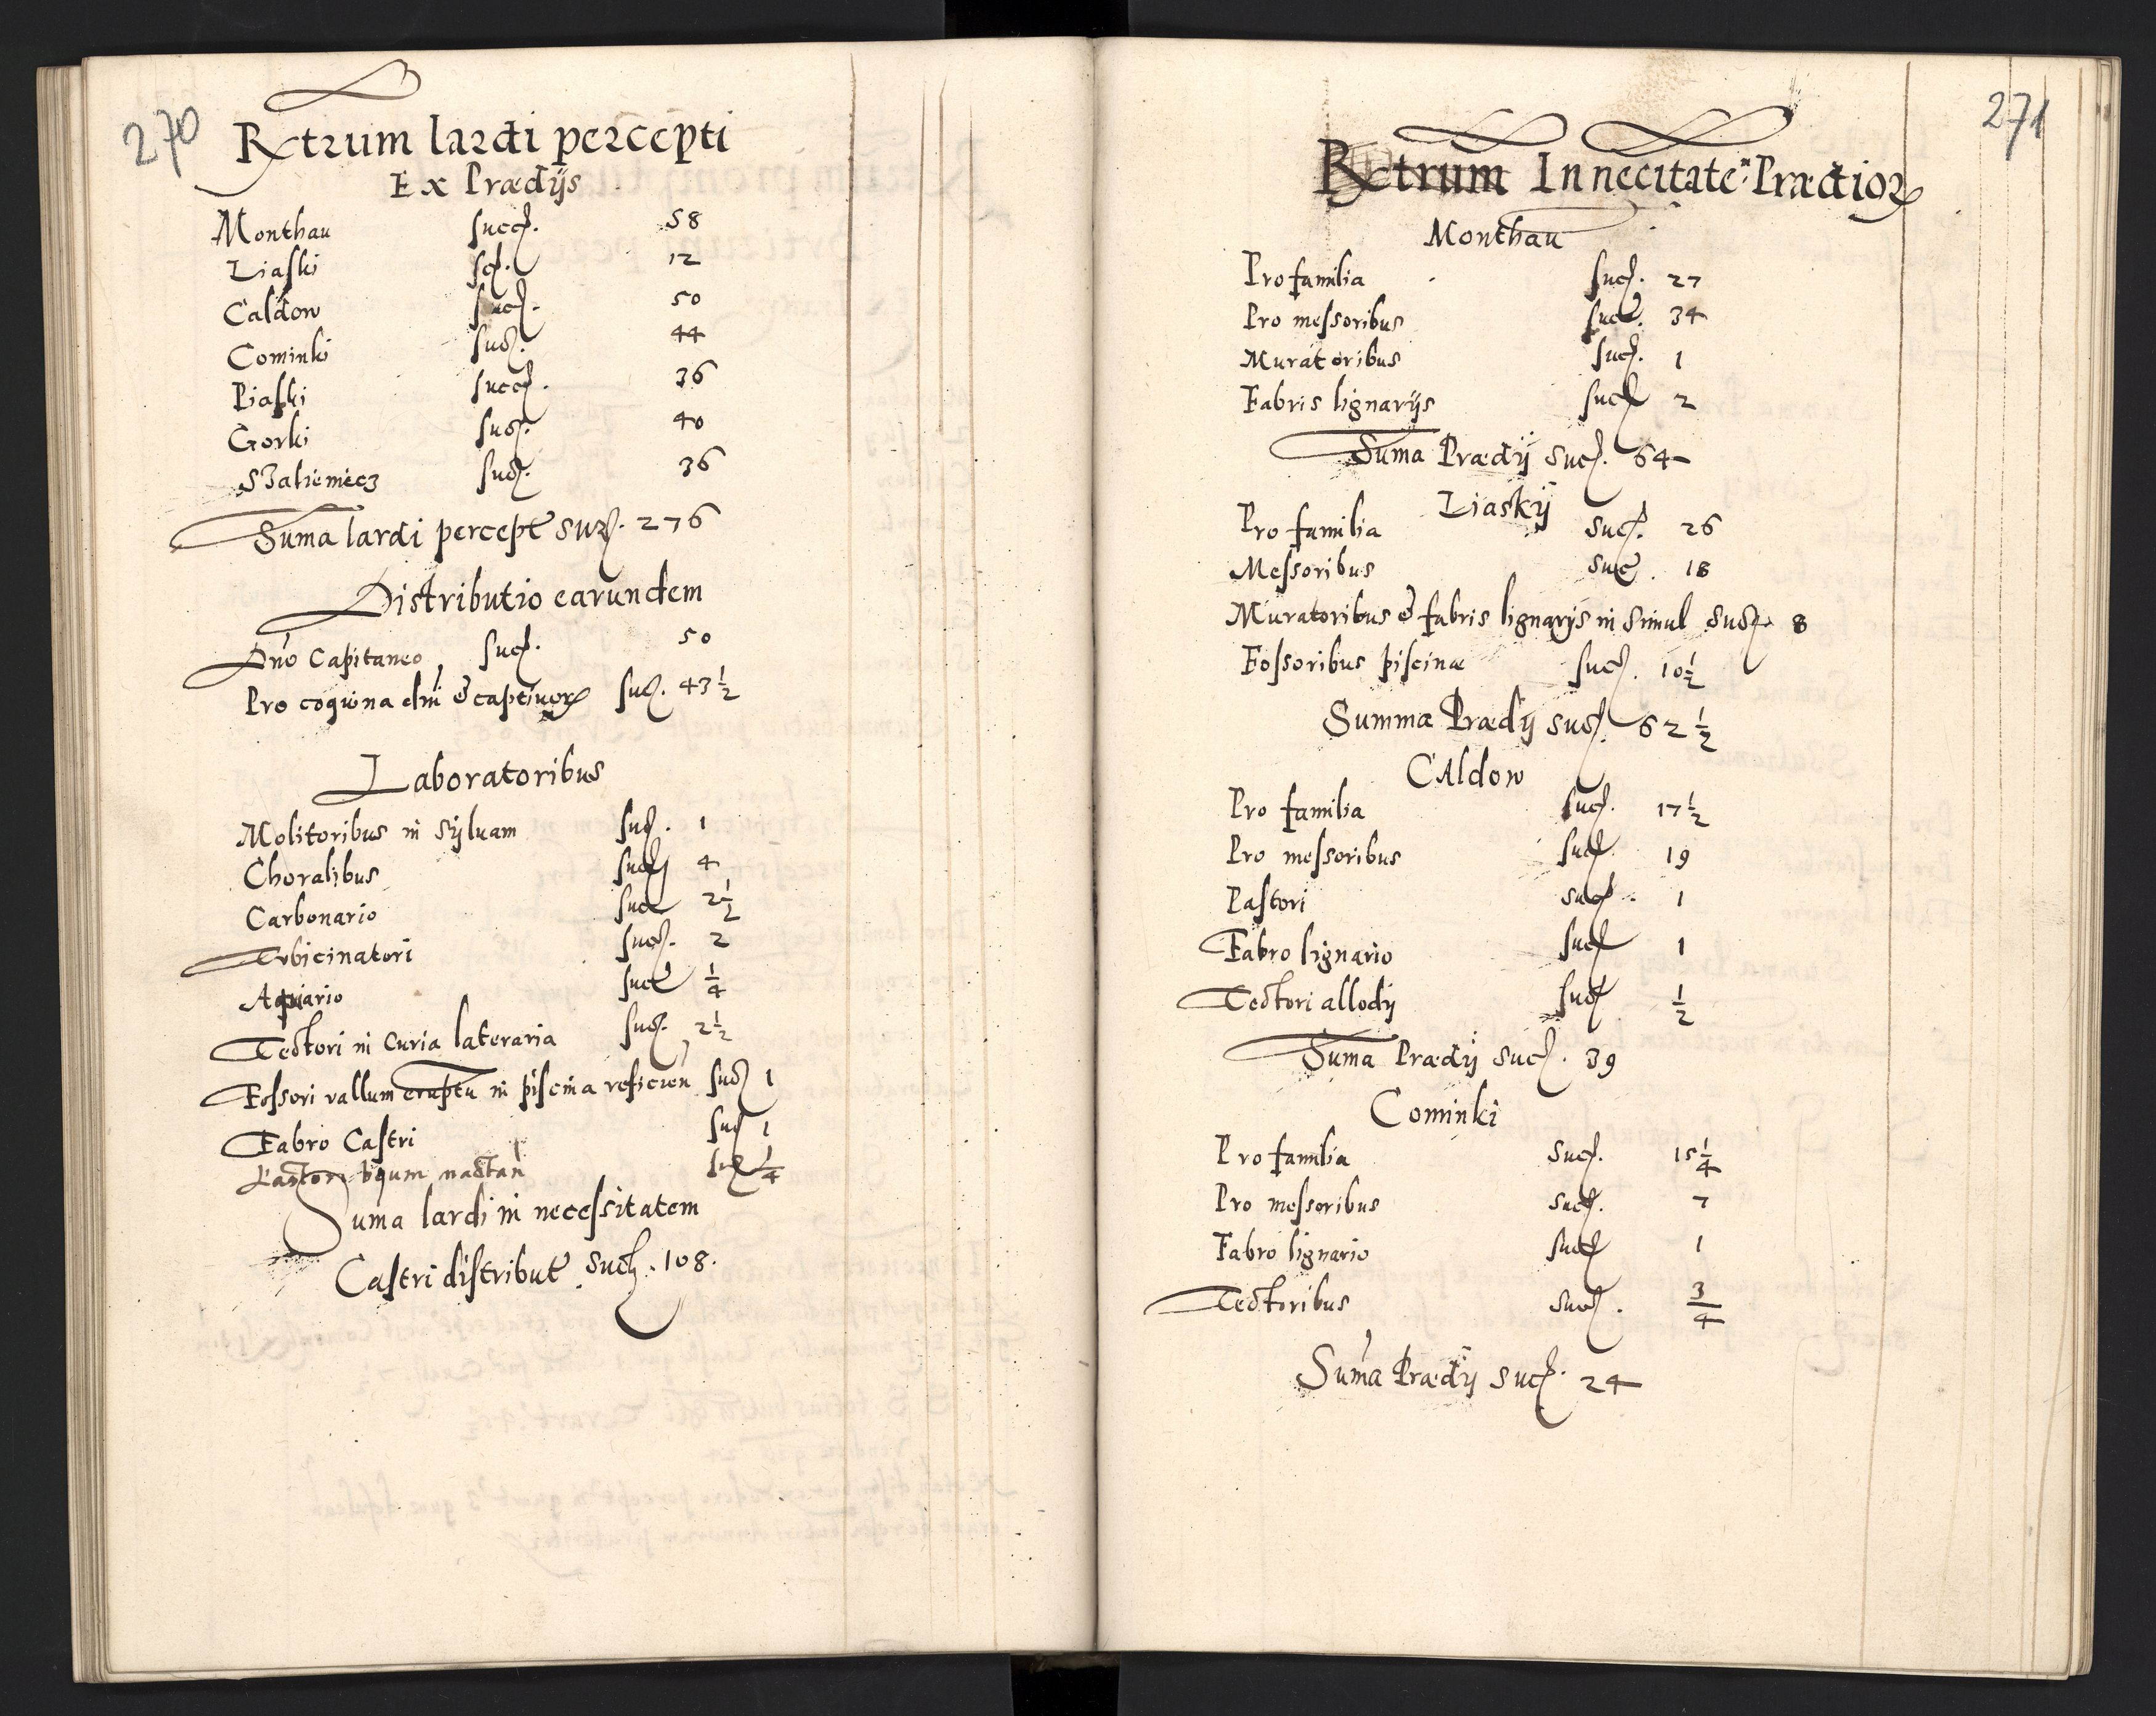 270
Rtrum lardi percepti
Ex Prædijs
Monthau succ. 58
Liaski sc. 12
Caldow succ. 50
Cominki suc. 44
Piaski succ. 36
Gorki suc. 40
Szaliemiecz suc. 36
Suma lardi percept suc. 276
Distributio earundem
Dno Capitaneo suc. 50
Pro coquina dni & captivor suc. 43 1/2
Laboratoribus
Molitoribus in Sylvam suc. 1
Choralibus succ 4
Carbonario succ 2 1/2
Tubicinatori succ. 2
Aquario succ 1/4
Tectori in Curia lateraria suc. 2 1/2
Fossori vallum eruptu in piscina reficien suc 1
Fabro Castri suc 1
suc 1/4
Suma lardi in necessitatem
Castri distribut such. 108.
271
Rtrum In necitate Prædior
Monthau
Pro familia suc. 27
Pro messoribus succ. 34
Muratoribus suc. 1
Fabris lignarijs suc 2
Suma Prædij suc. 64
Liaskij
Pro familia suc. 26
Messoribus suc. 18
Muratoribus & fabris lignarijs in simul suc 8
Fossoribus piscinæ suc. 10 1/2
Summa Prædij suc. 62 1/2
CAldow
Pro familia suc. 17 1/2
Pro messoribus suc. 19
Pastori suc. 1
Fabro lignario suc 1
Tectori allodij suc 1/2
Suma Prædij suc. 39
Cominki
Pro familia suc. 15 1/4
Pro messoribus suc. 7
Fabro lignario suc 1
Tectoribus suc. 3/4
Suma Prædij suc. 24